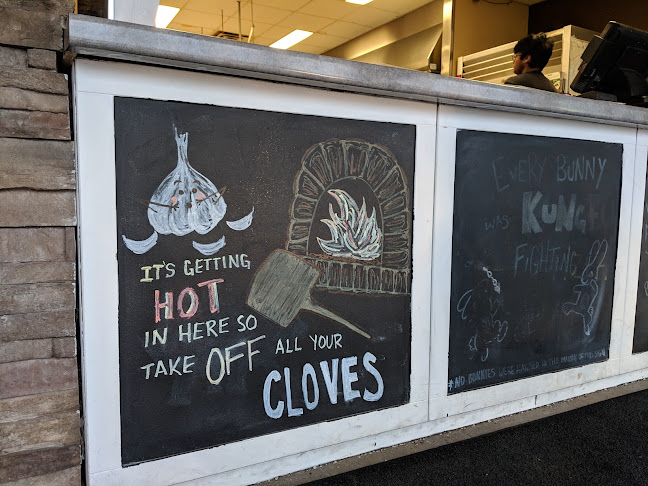 IT'S GETTING
HOT
IN HERE SO
TAKE OFF ALL YOUR
CLOVES
EVERY BUNNY
WAS KUNG
FIGHTING
*NO BUNNIES WERE HARMED IN THE MAKING OF THIS SIGN